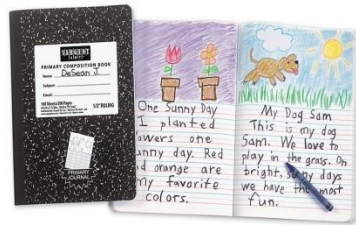 SARGENT
PRIMARY COMPOSITION BOOK
Name: DeSean J.
Subject:
1/2" RULING
PRIMARY
JOURNAL
One Sunny Day
I planted
owers one
unny day. Red
d orange are
my favorite
colors.
My Dog Sam
This is my dog
Sam. We love to
play in the grass. On
bright, Sunny days
we have the most
fun.